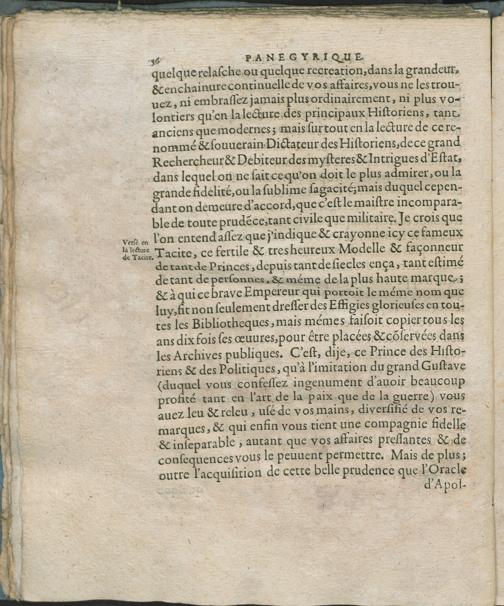 36 PANEGYRIQUE
quelque relasche ou quelque recreation, dans la grandeur,
& enchainure continuelle de vos affaires, vous ne les trou-
uez, ni embrassez jamais plus ordinairement, ni plus vo-
lontiers qu'en la lecture des principaux Historiens, tant
anciens que modernes; mais sur tout en la lecture de ce re-
nommé & souuerain Dictateur des Historiens, de ce grand
Rechercheur & Debiteur des mysteres & Intrigues d'Estat,
dans lequel on ne sait ce qu'on doit le plus admirer, ou la
grande fidelité, ou la sublime sagacité; mais duquel cepen-
dant on demeure d'accord, que c'est le maistre incompara-
ble de toute prudēce, tant civile que militaire. Je crois que
l'on entend assez que j'indique & crayonne icy ce fameux
Versé en
la lecture
de Tacite.
Tacite, ce fertile & tres heureux Modelle & façonneur
de tant de Princes, depuis tant de siecles ença, tant estimé
de tant de personnes, & méme de la plus haute marque;
& à qui ce brave Empereur qui portoit le méme nom que
luy, fit non seulement dresser des Effigies glorieuses en tou-
tes les Bibliotheques, mais mémes faisoit copier tous les
ans dix fois ses œuures, pour être placées & cōservées dans
les Archives publiques. C'est, dije, ce Prince des Histo-
riens & des Politiques, qu'à l'imitation du grand Gustave
(duquel vous confessez ingenument d'auoir beaucoup
profité tant en l'art de la paix que de la guerre) vous
auez leu & releu, usé de vos mains, diversifié de vos re-
marques, & qui enfin vous tient une compagnie fidelle
& inseparable, autant que vos affaires pressantes & de
consequences vous le peuuent permettre. Mais de plus;
outre l'acquisition de cette belle prudence que l'Oracle
d'Apol-